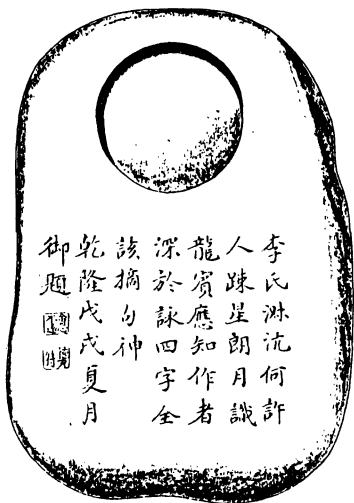 李氏淋沆何許
人疎星朗月識
龍賓應知作者
深於詠四字全
該摘句神
乾隆戊戌夏月
御題